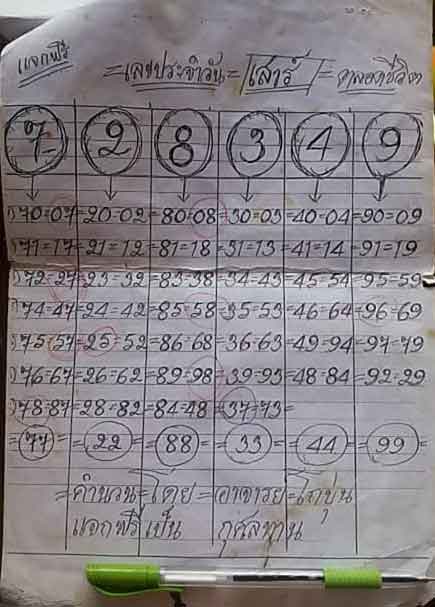 แจกฟรี =เลขประจำวัน= เสาร์ =ตลอดชีวิต
7 2 8 3 4 9
70=07=20-02=80=08=30=03=40-04=90=09
71=17=21=12=81=18=31=13=41=14=91=19
72=27=23=32=83=38=34=43=45=54=95=59
74=47=24=42=85=58=35=53=46=64=96=69
75=57=25=52=86=68=36=63=49=94=97=79
76=67=26=62=89=98=39=93=48=84=92=29
78=87=28=82=84=48=37=73=
=77=22=88=33=44=99=
=คำนวน=โดย=อาจารย์=
แจกฟรี เป็น กุศลทาน